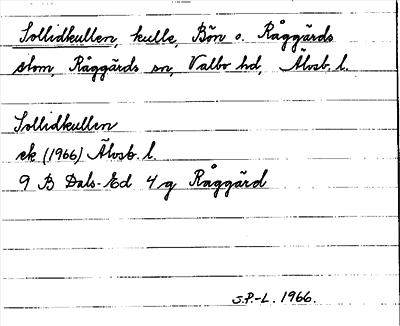 Sollidkullen, kulle, Bön o. Råggärds
slom, Råggärds sn, Valbo hd, Älvsb. l.
Sollidkullen
ek (1966) Älvsb. l.
9 B Dals-Ed 4 g Råggärd
S.P.-L. 1966.